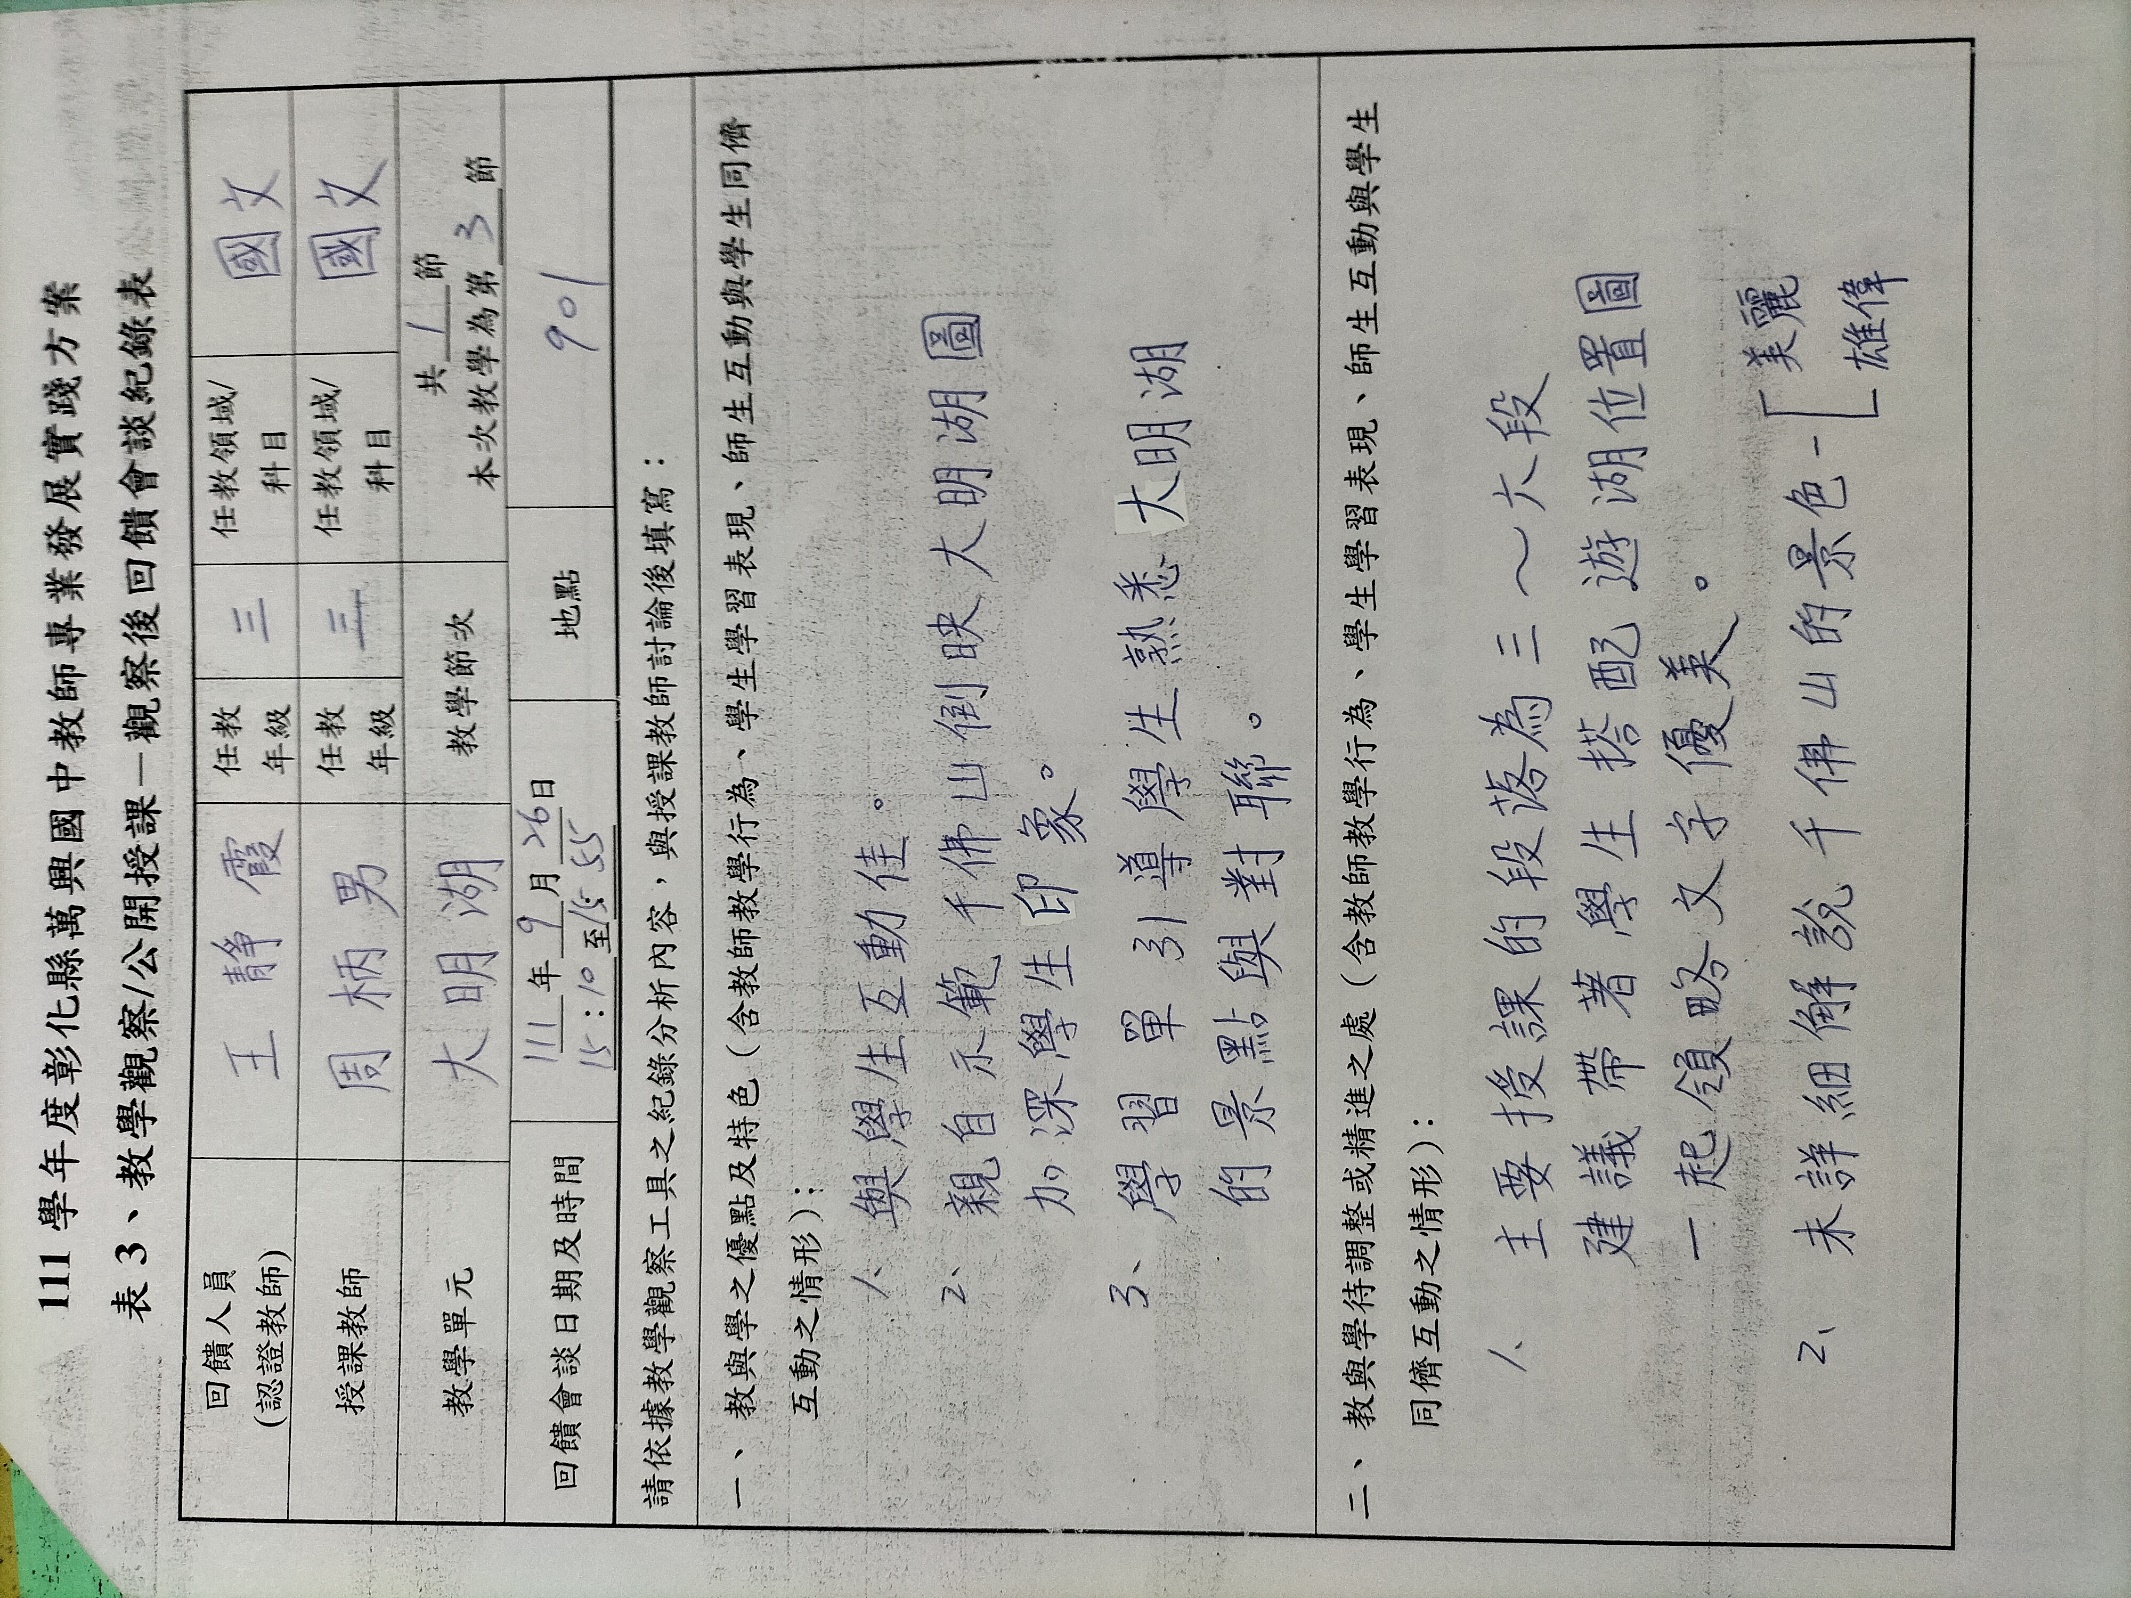 111 學年度彰化縣萬興國中教師專業發展實踐方案
表 3、教學觀察/公開授課—觀察後回饋會談紀錄表
回饋人員
(認證教師)
王靜霞
任教
年級
三
任教領域/
科目
國文
授課教師
周柄男
任教
年級
三
任教領域/
科目
國文
教學單元
大明湖
教學節次
共 1 節
本次教學為第 3 節
回饋會談日期及時間
111 年 9 月 26 日
15:10 至 15 55
地點
901
請依據教學觀察工具之紀錄分析內容，與授課教師討論後填寫：
一、教與學之優點及特色（含教師教學行為、學生學習表現、師生互動與學生同儕
互動之情形）：
1、與學生互動佳。
2、親自示範千佛山倒映大明湖圖
加深學生印象。
3、學習單引導學生熟悉大明湖
的景點與對聯。
二、教與學待調整或精進之處（含教師教學行為、學生學習表現、師生互動與學生
同儕互動之情形）：
1、主要授課的段落為三～六段
建議帶著學生搭配遊湖位置圖
一起領略文字優美。
2、未詳細解說千佛山的景色-[美麗
雄偉